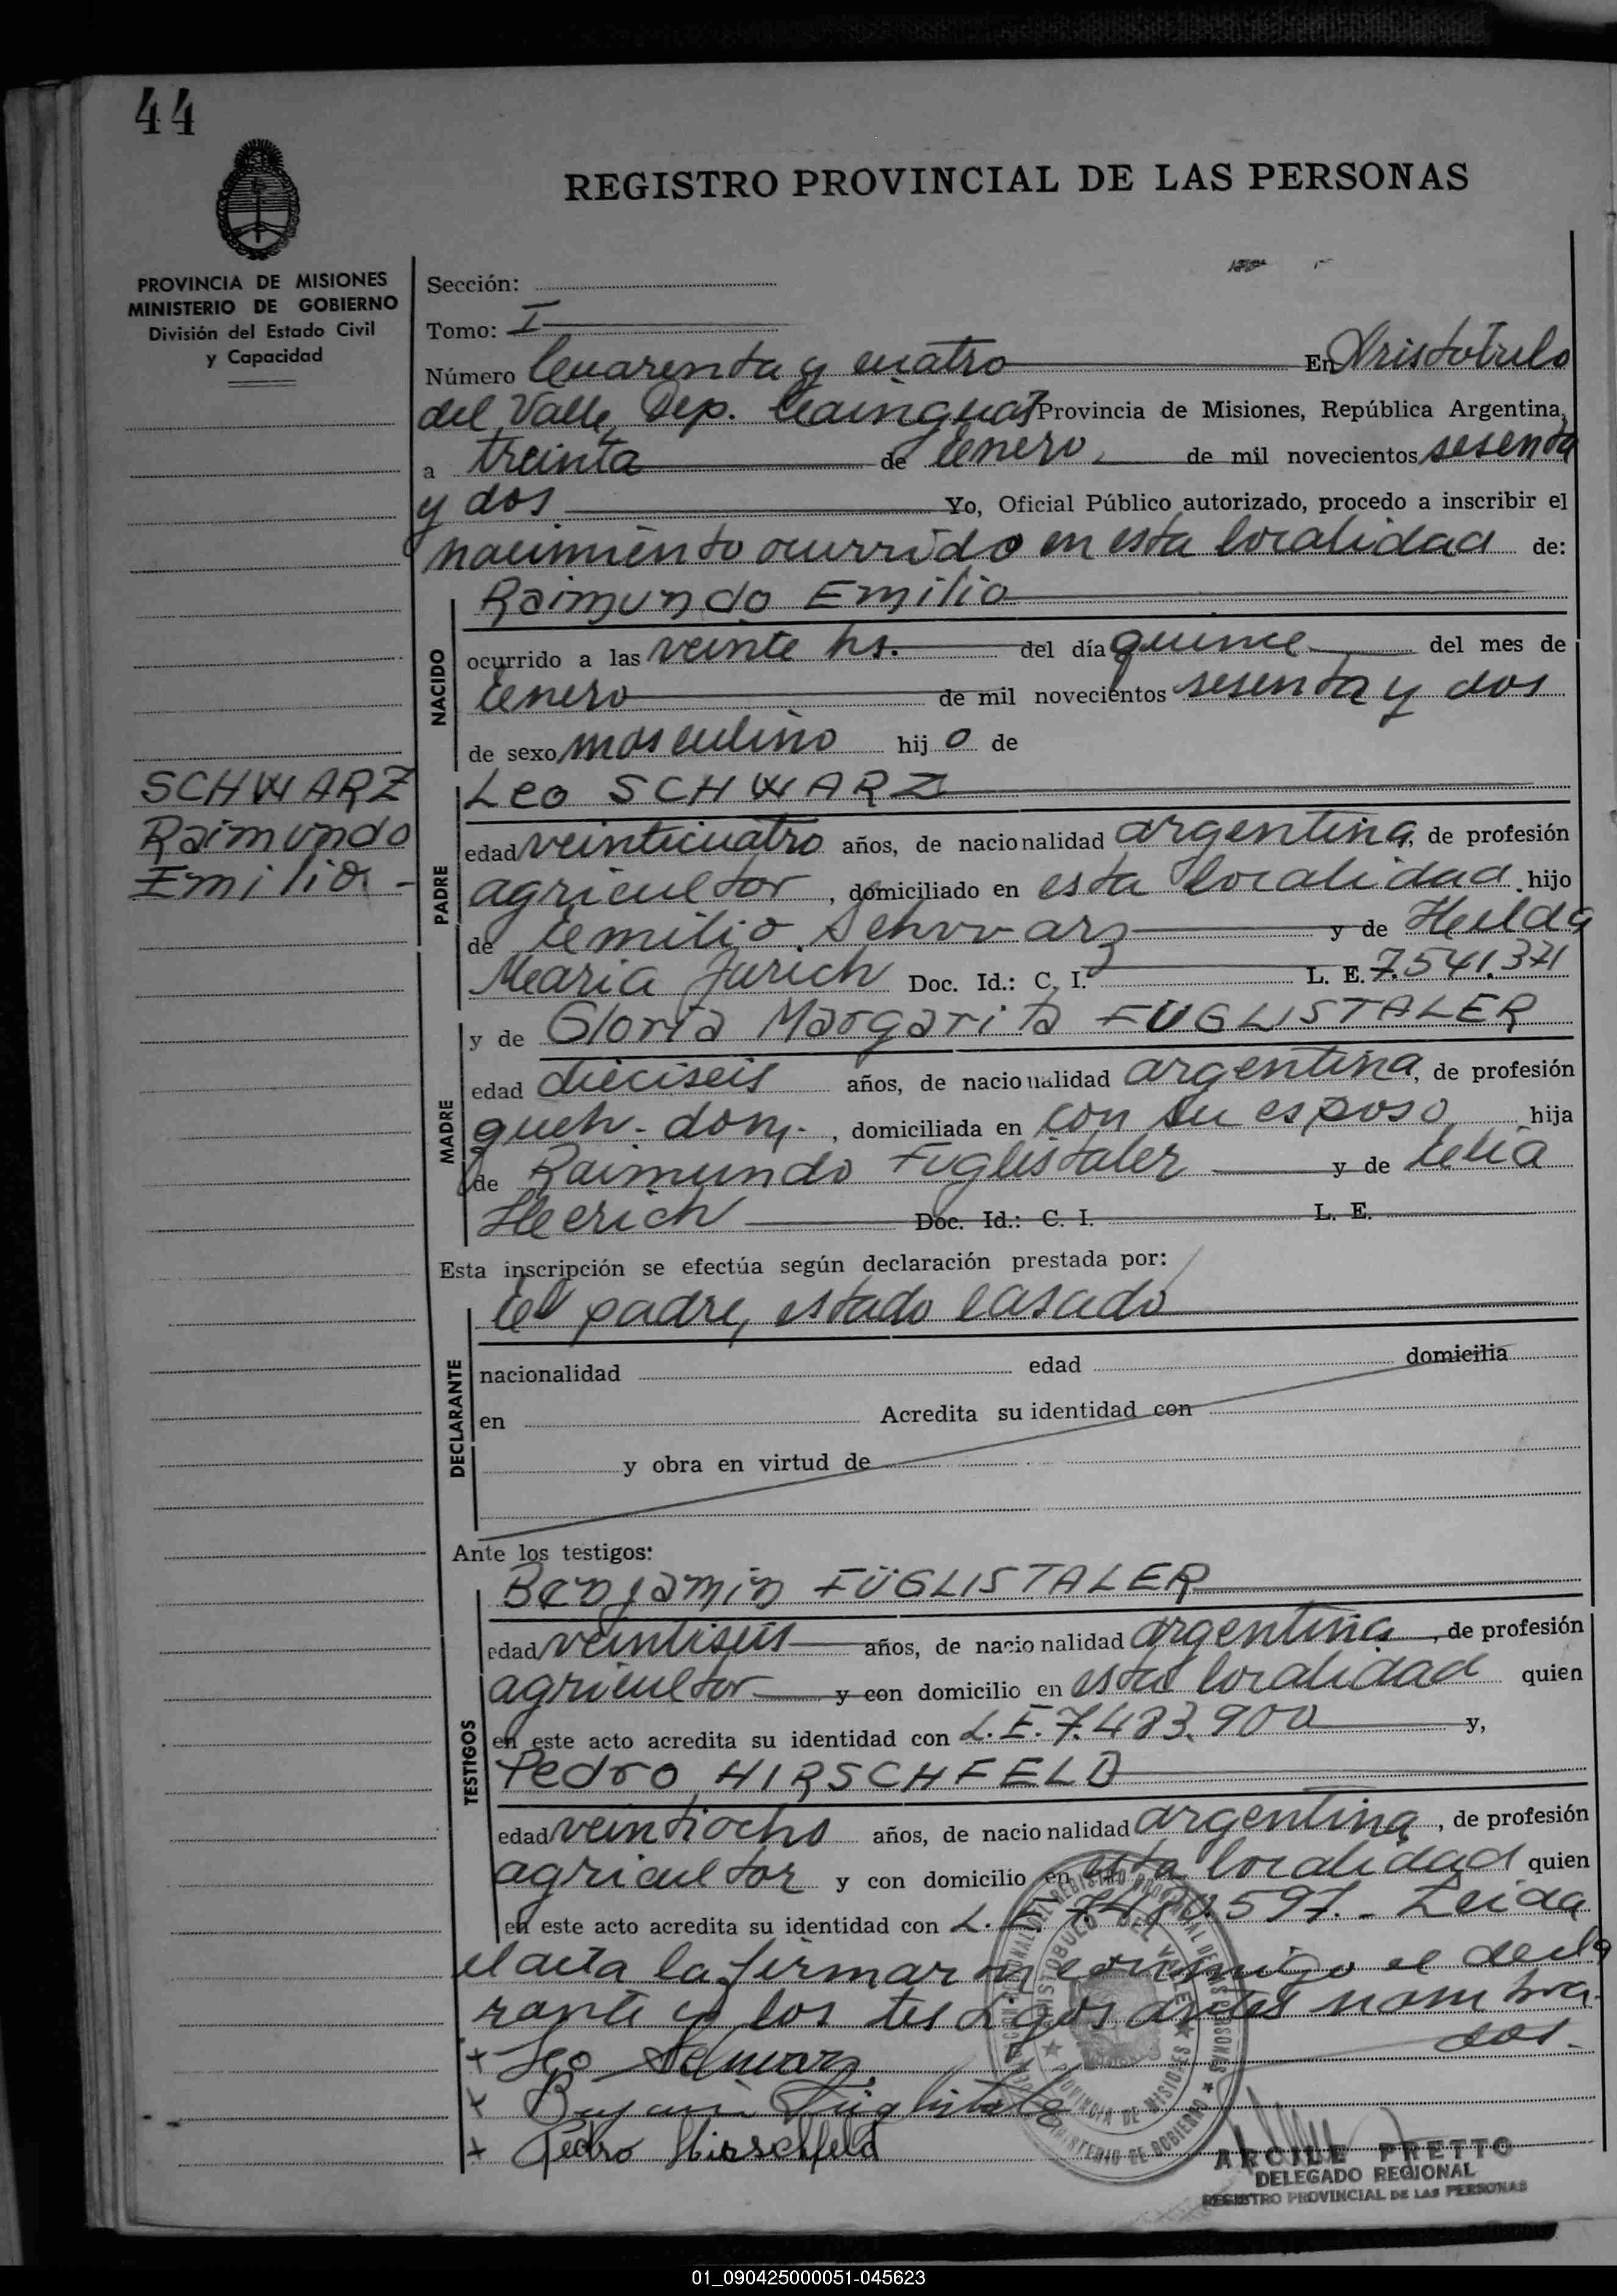 44
REGISTRO PROVINCIAL DE LAS PERSONAS
PROVINCIA DE MISIONES
MINISTERIO DE GOBIERNO
División del Estado Civil
y Capacidad
Sección:
Tomo: I
Número Cuarenta y cuatro En Aristobulo
del Valle, Dep. Cainguas Provincia de Misiones, República Argentina,
a treinta de Enero de mil novecientos sesenta
y dos Yo, Oficial Público autorizado, procedo a inscribir el
nacimiento ocurrido en esta localidad de:
Raimundo Emilio
NACIDO
ocurrido a las veinte hs. del día quince del mes de
Enero de mil novecientos sesenta y dos
de sexo masculino hijo de
SCHWARZ
Raimundo
Emilio -
Leo SCHWARZ
PADRE
edad veinticuatro años, de nacionalidad argentina, de profesión
agricultor, domiciliado en esta localidad hijo
de Emilio Schwarz y de Hulda
Maria Jurich Doc. Id.: C. I. L. E. 7.541.371
MADRE
y de Gloria Margarita FUGLISTALER
edad dieciseis años, de nacionalidad argentina, de profesión
queh. dom., domiciliada en con su esposo hija
de Raimundo Fuglistaler y de Celia
Herich Doc. Id.: C. I. L. E.
Esta inscripción se efectúa según declaración prestada por:
DECLARANTE
El padre, estado casado
nacionalidad edad domicilia
en Acredita su identidad con
y obra en virtud de
Ante los testigos:
TESTIGOS
Benjamin FÜGLISTALER
edad veintiseis años, de nacionalidad argentina, de profesión
agricultor y con domicilio en esta localidad quien
en este acto acredita su identidad con L.E. 7.483.900 y,
Pedro HIRSCHFELD
edad veintiocho años, de nacionalidad argentina, de profesión
agricultor y con domicilio en esta localidad quien
en este acto acredita su identidad con L.E. 7.480.597.- Leida
el acta la firmaron conmigo el decla
rante y los testigos antes nombra-
dos.-
+ Leo Schwarz
+ Benjamin Füglistaler
+ Pedro Hirschfeld
ARCILE PRETTO
DELEGADO REGIONAL
REGISTRO PROVINCIAL DE LAS PERSONAS
01_090425000051-045623